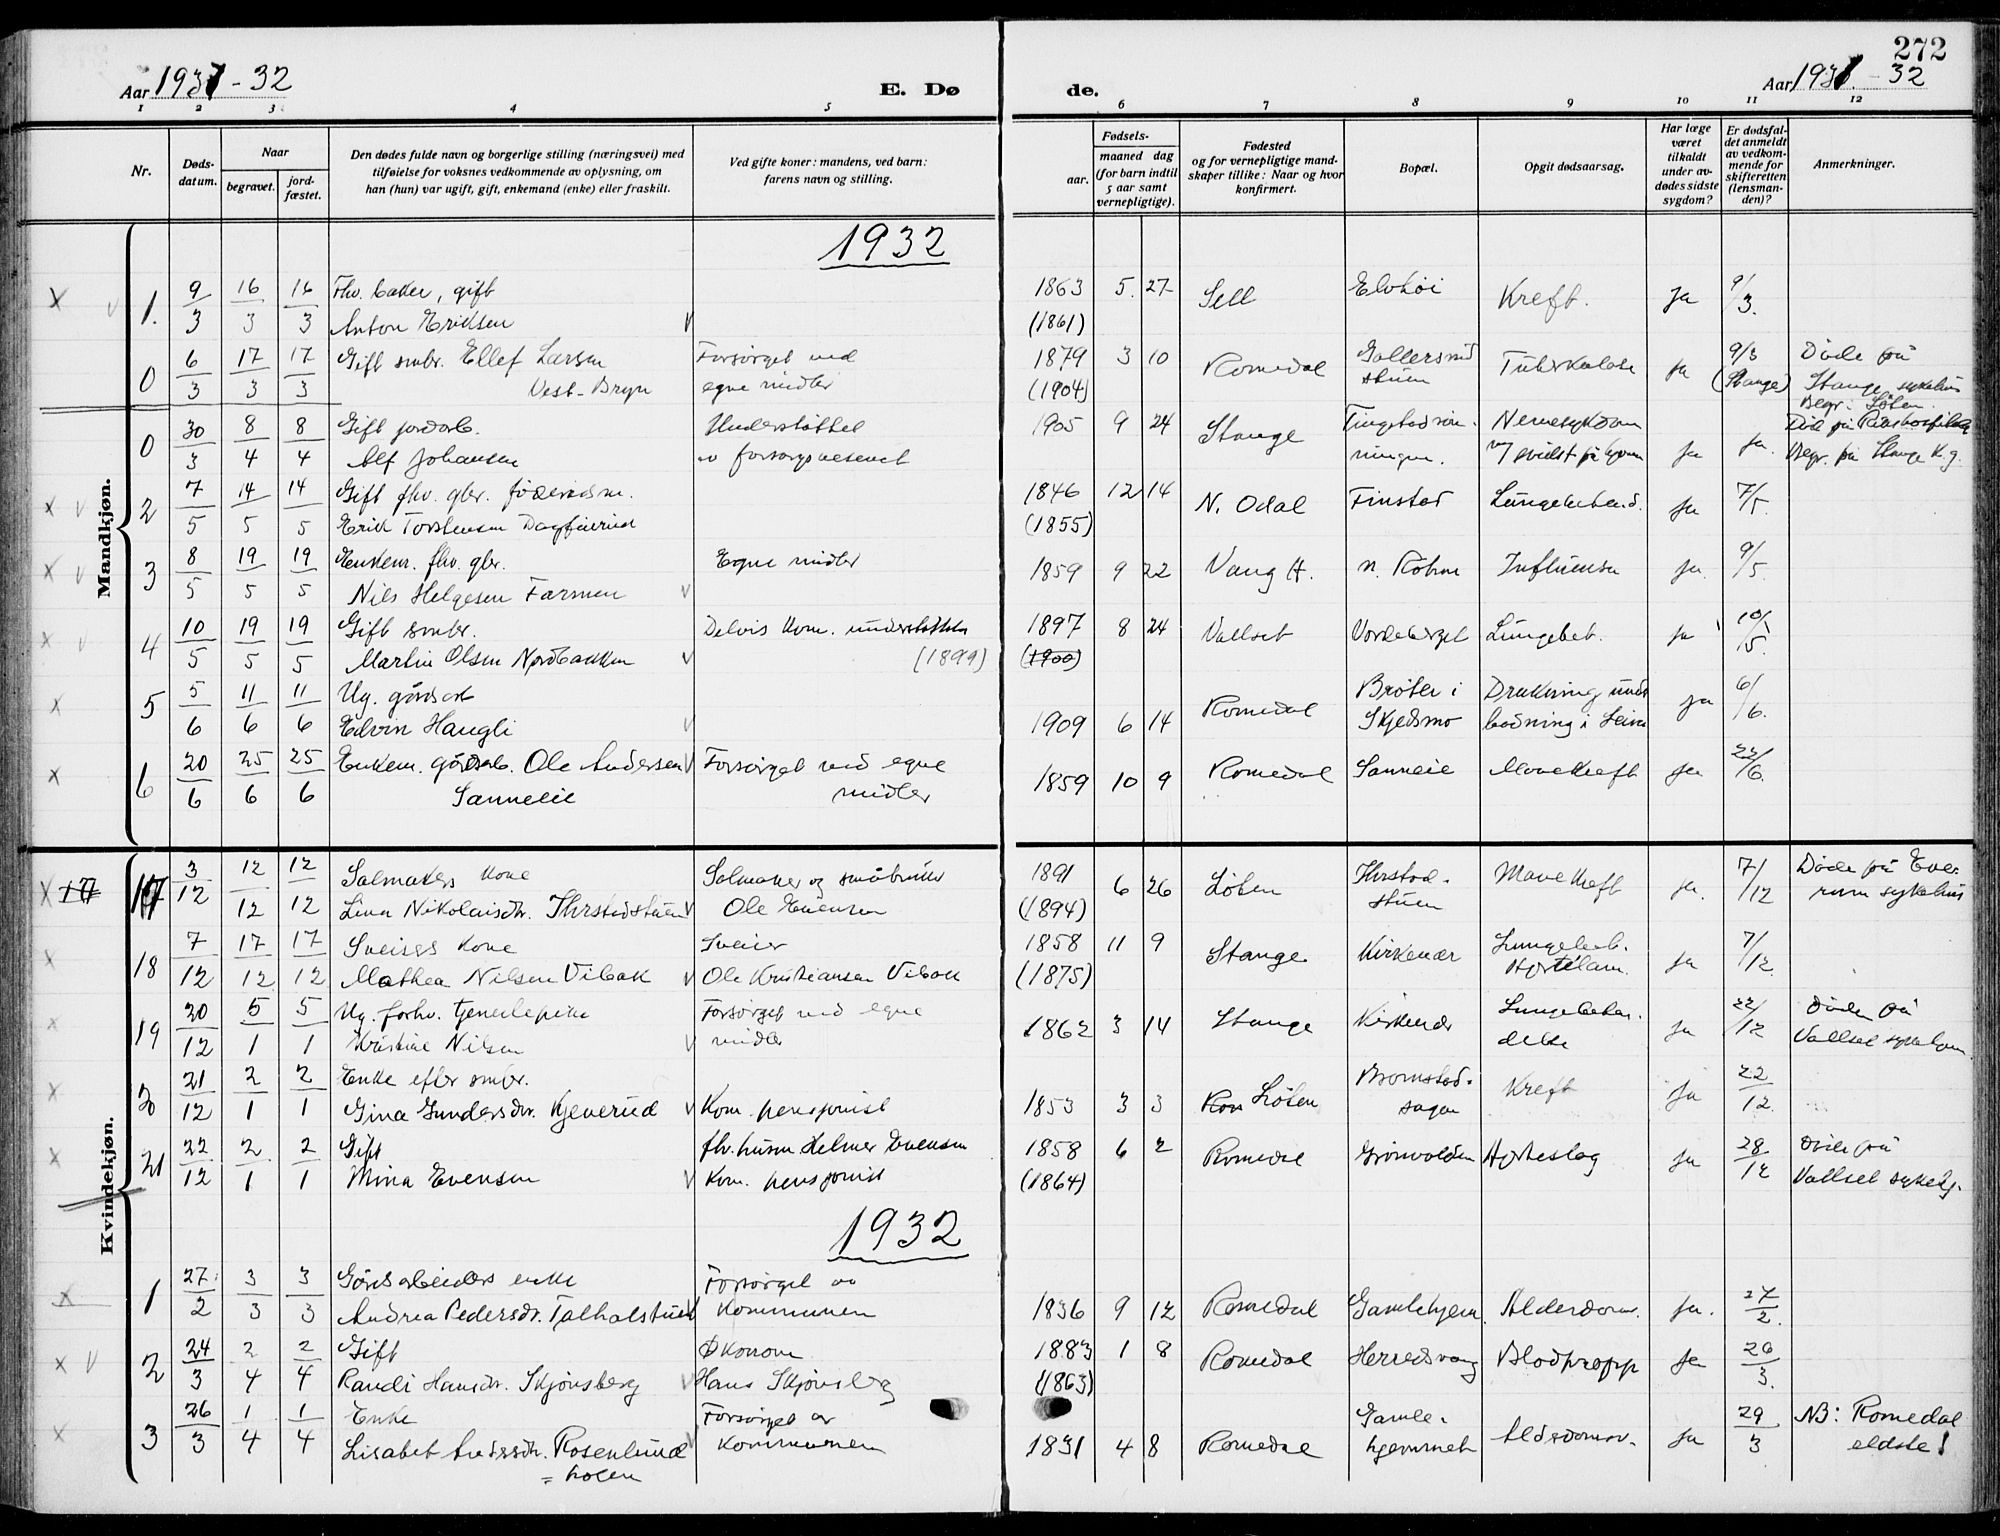 272
Aar 1931 - 32
E. Dø
de.
Aar 1931. - 32
1 2 3 4 5 6 7 8 9 10 11 12
Nr.
Døds-
datum.
Naar
begravet.
jord-
fæstet.
Den dødes fulde navn og borgerlige stilling (næringsvei) med
tilføielse for voksnes vedkommende av oplysning, om
han (hun) var ugift, gift, enkemand (enke) eller fraskilt.
Ved gifte koner: mandens, ved barn:
farens navn og stilling.
Fødsels-
aar.
maaned dag
(for barn indtil
5 aar samt
vernepligtige).
Fødested
og for vernepligtige mand-
skaper tillike: Naar og hvor
konfirmert.
Bopæl.
Opgit dødsaarsag.
Har læge
været
tilkaldt
under av-
dødes sidste
sygdom?
Er dødsfal-
det anmeldt
av vedkom-
mende for
skifteretten
(lensman-
den)?
Anmerkninger.
Mandkjøn.
1932
1. 9/3 16/3 16/3 Fhv. baker, gift 1863 5. 27 Sell Elvhøi Kreft. Ja 9/3.
Anton Eriksen (1861)
0 6/3 17/3 17/3 Gift smbr. Ellef Larsen Forsørget ved 1879 3 10 Romedal Tuberkulose Ja 9/3 Døde på
Vest-Bryn egne midler (1904) stuen (Stange) Stange sykehus
Begr. i Løten.
0 30/3 8/4 8/4 Gift jordarb. Understøttet 1905 9 24 Stange Ja Ja. Død på Rikshospitalet
Alf Johansen av forsorgsvesenet Begr. på Stange K.g.
2 7/5 14/5 14/5 Gift fhv. gbr. føderådsm. 1846 12 14 N. Odal Finstad Lungebetend. Ja 7/5.
Erik Torstensen (1855)
3 8/5 19/5 19/5 Enkem. fhv. gbr. Egne midler 1859 9 22 Vang H. Influensa Ja 9/5.
Nils Helgesen Farmen
4 10/5 19/5 19/5 Gift smbr. Delvis kom. understøttet 1897 8 24 Vallset Vordeberget Lungebet. Ja 10/5.
Martin Olsen Nordbakken (1899) (1900)
5 5/6 11/6 11/6 Ug. gårdsarb 1909 6 14 Romedal Brøter i Drukning under Ja 6/6.
Edvin Haugli Skjedsmo badning i Leira
6 20/6 25/6 25/6 Enkem. gårdsarb. Ole Andersen Forsørget ved egne 1859 10 9 Romedal Sanneie Mavekreft Ja 22/6.
Sanneeie midler
Kvindekjøn.
17 3/12 12/12 12/12 Salmakers kone Salmaker og småbruker 1891 6 26 Løten Thrstad- Mavekreft Ja. 7/12 Døde på Elve-
Lina Nikolaisdtr. Thrstadstuen Ole Evensen (1894) stuen rum sykehus
18 7/12 17/12 17/12 Sveisers kone Sveiser 1858 11 9 Stange Kirkenær Lungebet. Ja 7/12
Mathea Nilsen Vibak Ole Kristiansen Vibak (1875) Hjertelam.
19 20/12 5/1 5/1 Ug. forhv. tjenestepike Forsørget ved egne 1862 3 14 Stange Kirkenær Lungebeten- Ja 22/12 Døde på
Kristine Nilsen midler delse Vallset sykehjem.
20 21/12 2/1 2/1 Enke efter smbr. 1853 3 3 Løten Kreft Ja 22/12.
Gina Gundersdtr. Kjeverud Kom. pensjonist
21 22/12 2/1 2/1 Gift fhv. husm Helmer Evensen 1858 6 2 Romedal Grønvolden Hjerteslag Ja 28/12 Døde på
Mina Evensen Kom. pensjonist (1864) Vallset sykehj.
1932
1 27/2 3/3 3/3 Gårdsarbeiders enke Forsørget av 1836 9 12 Romedal Gamlehjem. Alderdomsv. Ja. 27/2.
Andrea Pedersdr. Talhalstuen Kommunen
2 24/3 2/4 2/4 Gift Økonom 1883 1 8 Romedal Herredsvang Blodpropp Ja 26/3.
Randi Hansdr. Skjønsberg Hans Skjønsberg (1863)
3 26/3 1/4 1/4 Enke Forsørget av 1831 4 8 Romedal Gamle- Aldersdomsv. Ja 29/3 NB: Romedal
Lisabet Andersdtr. Rosenlund Kommunen hjemmet eldste!
= holen